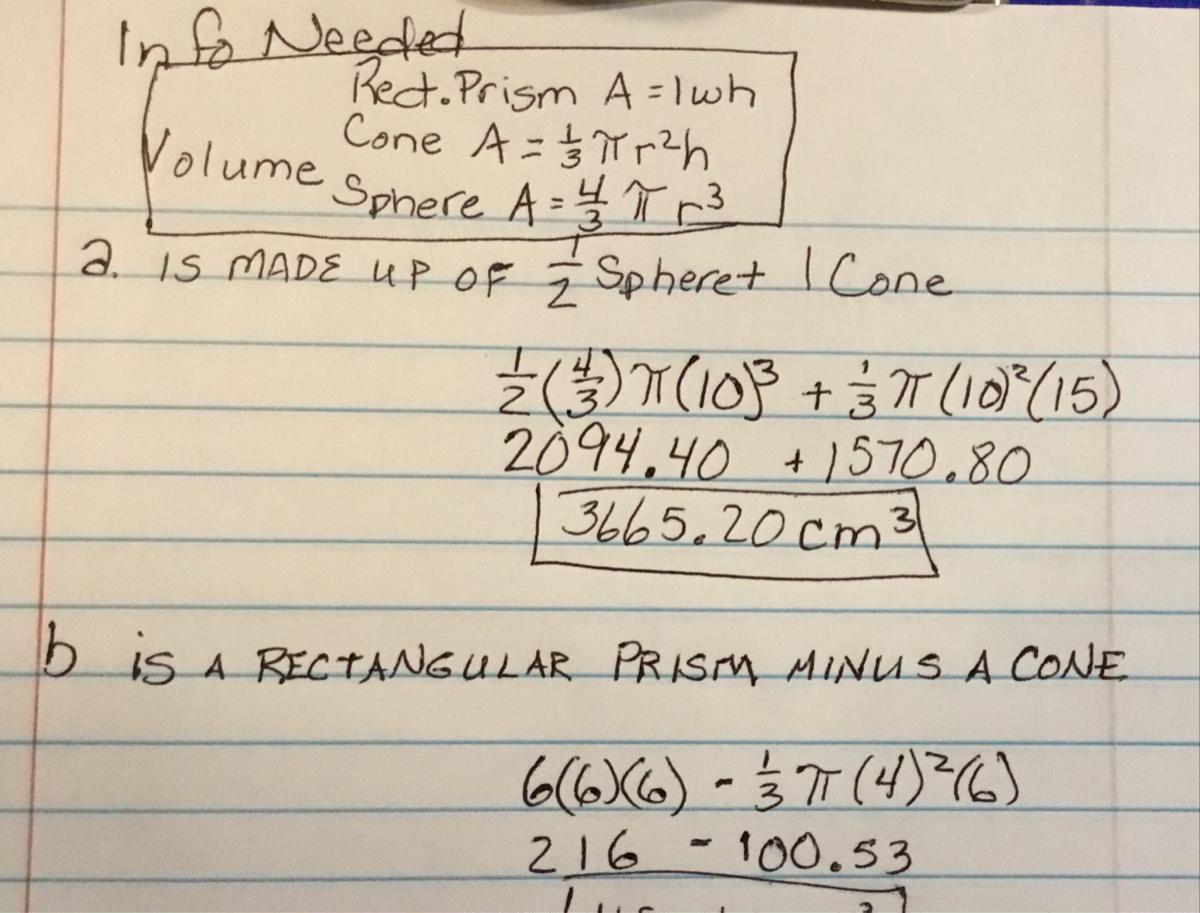 Info Needed
Rect. Prism A = lwh
Volume Cone A = 1/3 π r²h
Sphere A = 4/3 π r³
a. IS MADE UP OF 1/2 Sphere + 1 Cone
1/2 (4/3) π (10)³ + 1/3 π (10)² (15)
2094.40 + 1570.80
3665.20 cm³
b is A RECTANGULAR PRISM MINUS A CONE
6(6)(6) - 1/3 π (4)² (6)
216 - 100.53